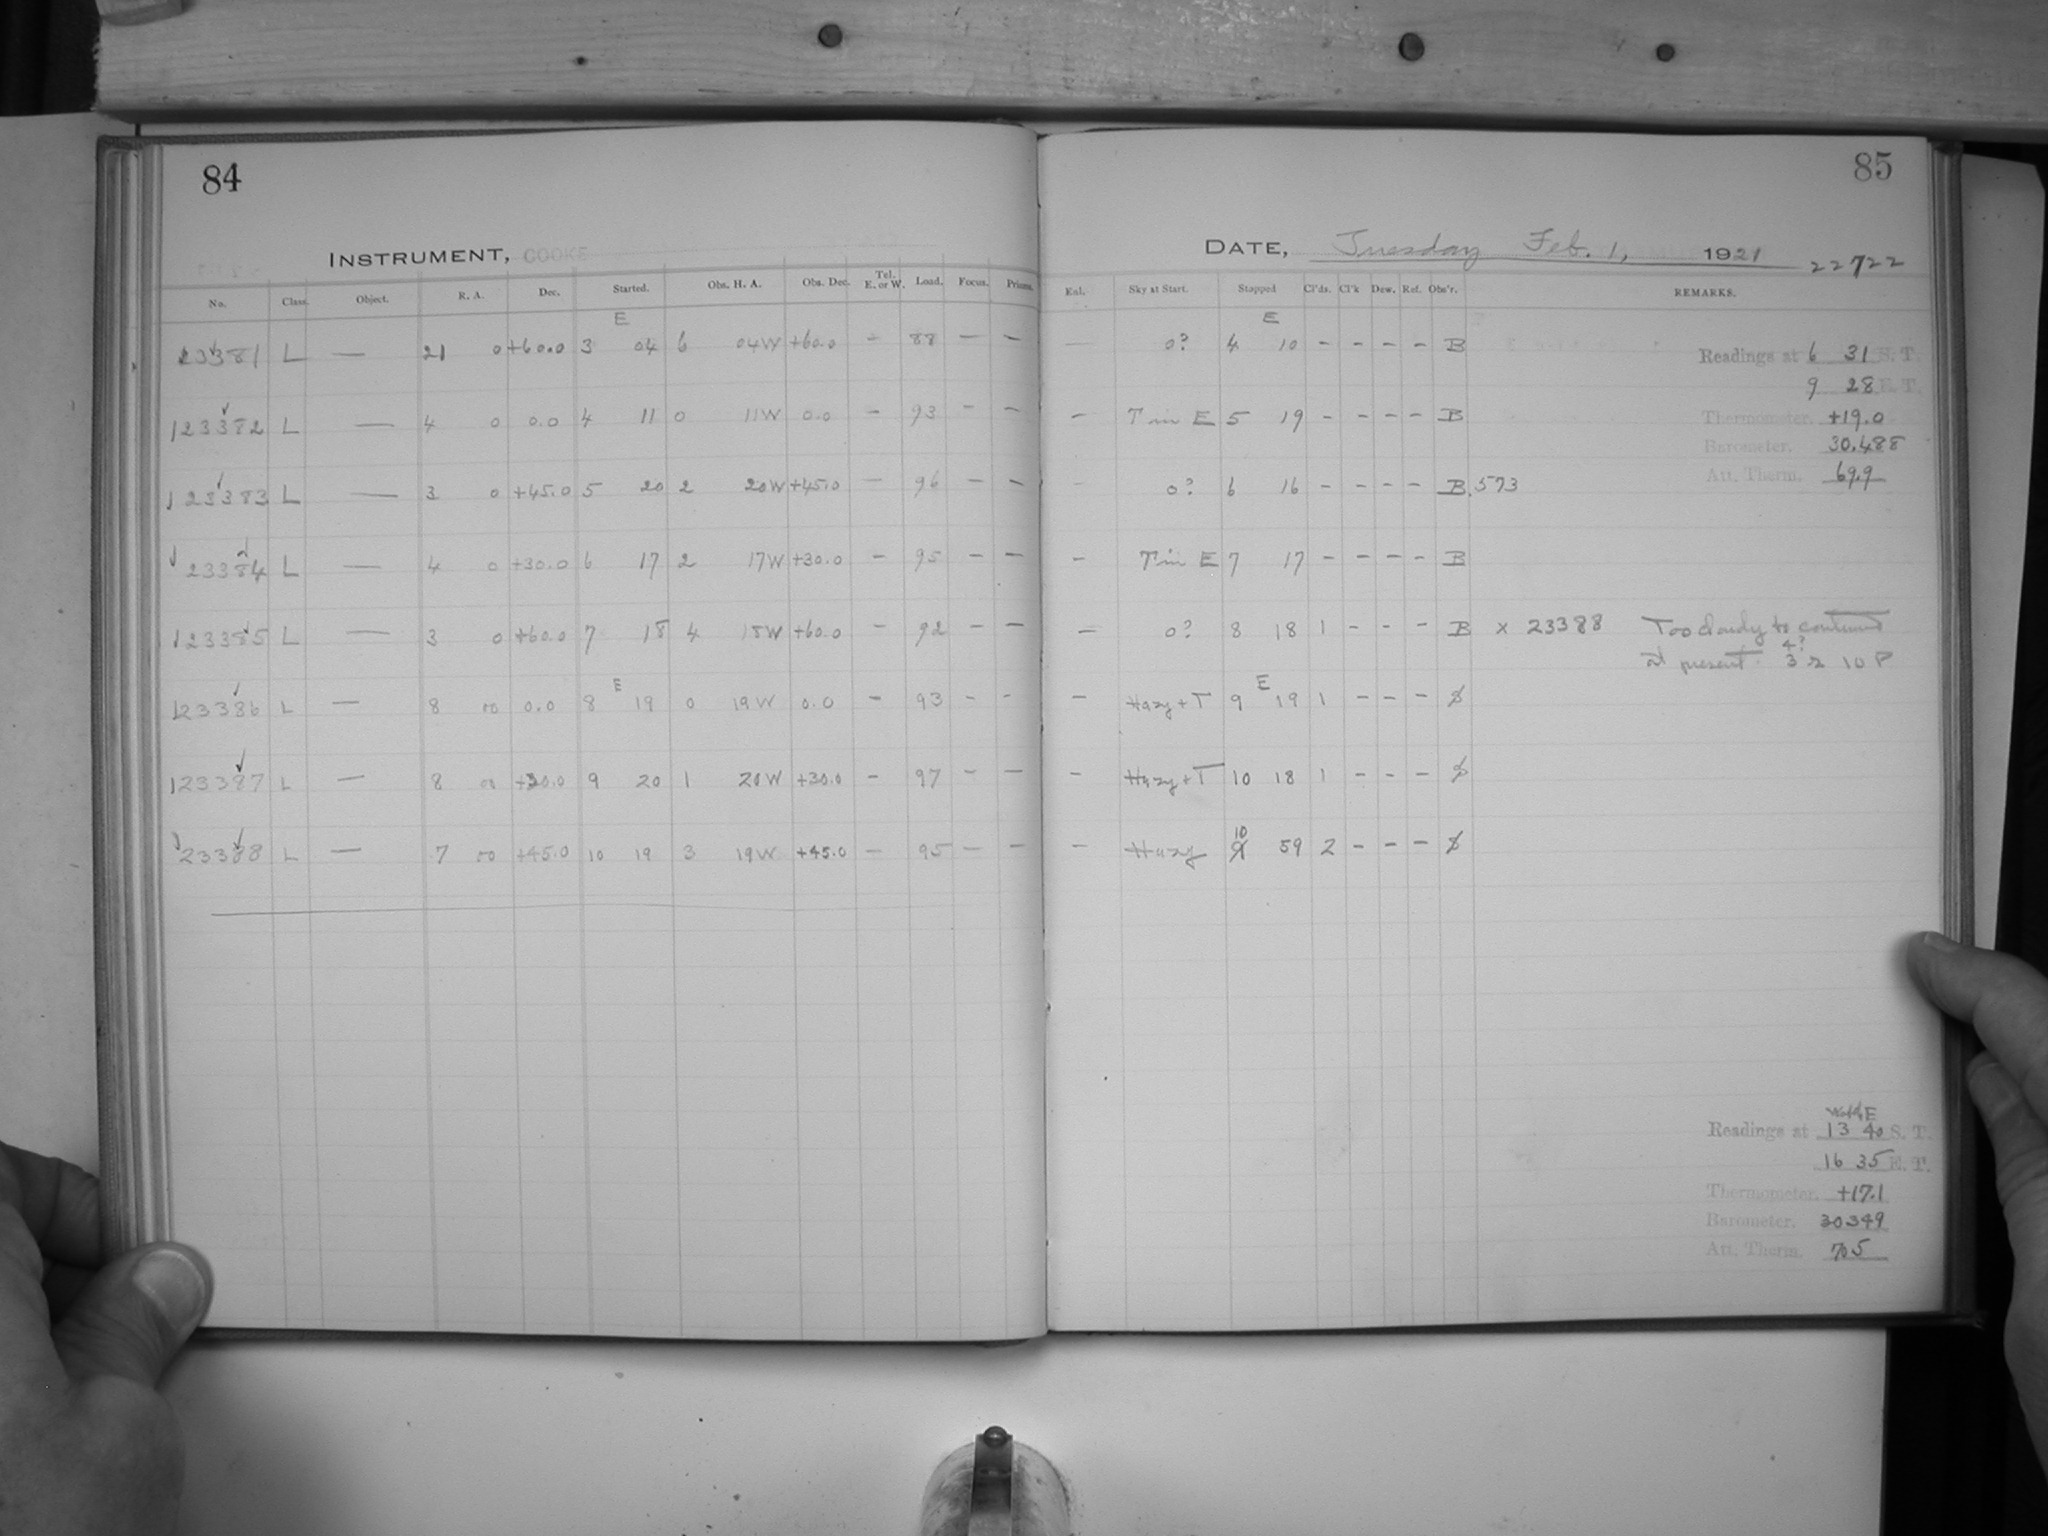 84
INSTRUMENT, COOKE
No. Class. Object. R. A. Dec. Started. Obs. H. A. Obs. Dec. Tel. E. or W. Load. Focus. Prisms.
E
23381 L — 21 0 +60.0 3 04 6 04W +60.0 — 88 — —
123382 L — 4 0 0.0 4 11 0 11W 0.0 — 93 — —
123383 L — 3 0 +45.0 5 20 2 20W +45.0 — 96 — —
23384 L — 4 0 +30.0 6 17 2 17W +30.0 — 95 — —
123385 L — 3 0 +60.0 7 18 4 18W +60.0 — 92 — —
E
123386 L — 8 00 0.0 8 19 0 19W 0.0 — 93 — —
123387 L — 8 00 +30.0 9 20 1 20W +30.0 — 97 — —
23388 L — 7 00 +45.0 10 19 3 19W +45.0 — 95 — —
85
DATE, Tuesday Feb. 1, 1921 22722
Enl. Sky at Start. Stopped Cl'ds. Cl'k Dew. Ref. Obs'r. REMARKS.
E
— 0? 4 10 — — — — B
— T in E 5 19 — — — — B
— 0? 6 16 — — — — B 573
— T in E 7 17 — — — — B
— 0? 8 18 1 — — — B x 23388 Too cloudy to continue
at present. 3 10 P
4?
E
— Hazy + T 9 19 1 — — —
— Hazy + T 10 18 1 — — —
10
— Hazy 9 59 2 — — —
Readings at 6 31 S. T.
9 28 E. T.
Thermometer. +19.0
Barometer. 30.488
Att. Therm. 69.9
Readings at 13 40 S. T.
16 35 E. T.
Thermometer. +17.1
Barometer. 30349
Att. Therm. 705